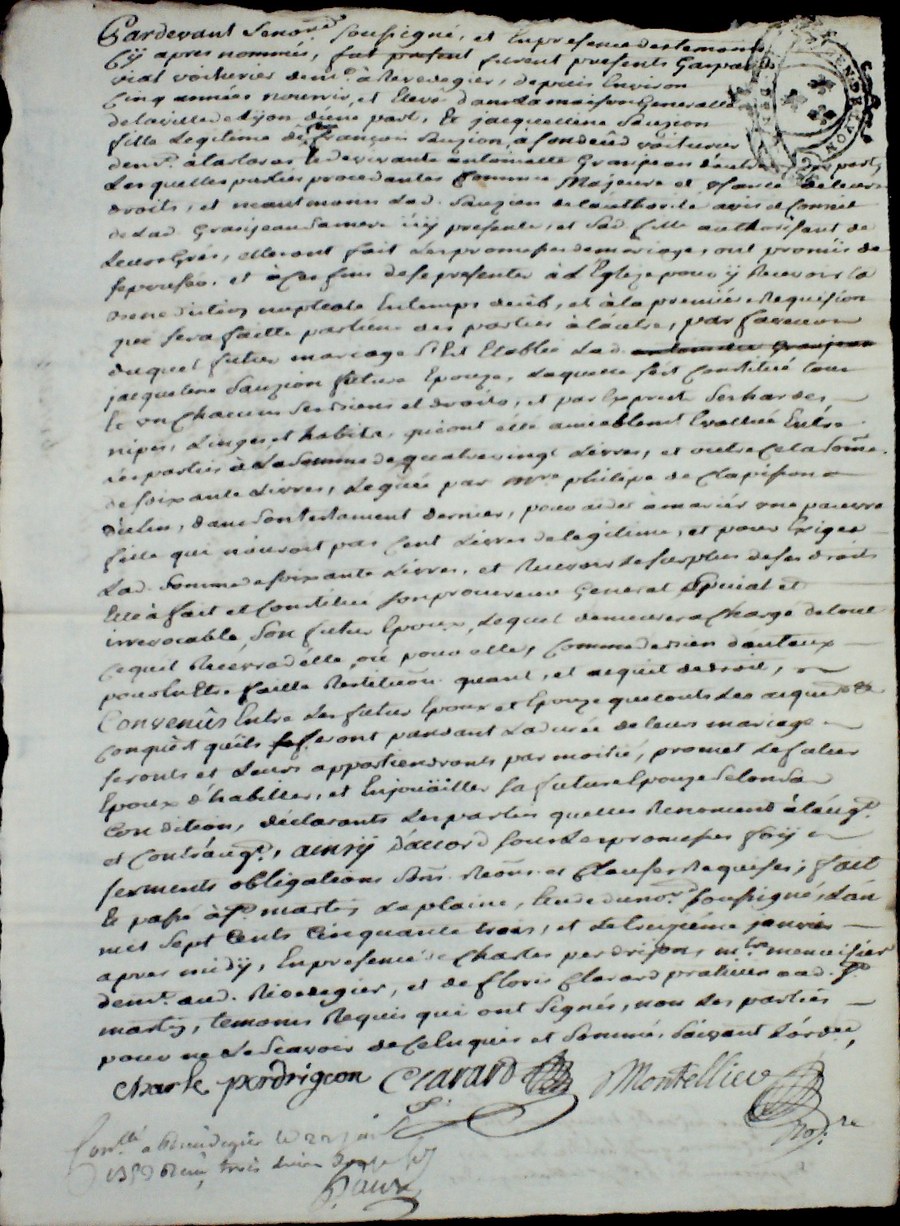 Pardevant le no.re soussigné, et en presence des temoins
cÿ apres nommés, fut present furent presents Gaspard
vial voiturier dem.t à Rivedegier, depuis environ
cinq années nourrir, et Elevé dans la maison Generalle
de la ville de Lÿon d'une part, Et jacquelinne Sauzion
fille Legitime de françois Sauzion, a son deüb voiturier
dem.t à et de vivante antoinette Granjean d'autre part,
Les quelles parties procedantes comme Majeure et de leurs
droits, et neantmoins Lad. Sauzion de l'authorité avis et conseil
de Lad. Granjean Sa mere icÿ presente, et Sad. fille authorisant de
Leurs Grés, elles ont fait Les promesses de mariage, ont promis de
s'epouser, et à ces fins de se presenter à L'Eglize pour ÿ Recevoir la
benediction nuptiale En temps deüb, et à la premiere Requision
que sera faitte par l'une des parties à l'autre, par faveur
duquel futur mariage S'est Etablie Lad. antoinette Granjean
jacqueline Sauzion future Epouze, Laquelle s'est Constitué tous
Et un chacuns ses biens et droits, et par Exprest Ses hardes,
nipes, Linges et habits, qui ont esté amiablement Evallué Entre
Les parties à La Somme de quatre vingt Livres, et outre Cela Somme
de soixante Livres, Leguée par M.re philipe de Clapisson
d'ulin, dans son testament dernier, pour aider à marier une pauvre
fille qui n'auroit pas Cent Livres de legitime, et pour Exiger
Lad. Somme de soixante Livres, et Recevoir Le surplus de ses droits
Elle à fait et Constitué son procureur General, Special et
irrevocable, son futur Epoux, Lequel demeurera Chargé de tout
Ce quil Recevra d'elle, où pour elle, Comme de bien dautaux
pour lui Estre faitte Restitution quant, et à qui de droit,
Convenûs Entre Les futur Epoux et Epouze que touts Les acquets &
Conquèst qu'ils feront pandant La durée de leurs mariage
seronts et Leurs appartiendronts par moitié, promet Led. futur
Epoux d'habiller, et Enjoüailler Sa future Epouze Selon Sa
Condition, déclarants Les parties quelles Renoncent à l'aug.t
et Contraug.t, ainsÿ d'accord sous Les promesses foÿ
serments obligations Soum. Renon. et Clauses Requises; fait
Et passé à S.t martin La plaine, Etude du no.re Soussigné, L'an
mil Sept Cents Cinquante trois, et Le treiziéme janvier
apres midÿ, En presence de Charles perdrison, m.tre menuisier
dem.t aud. Rivedegier, et de floris Clarard praticien aud. S.t
martin, temoins Requis qui ont Signés, non Les parties
pour ne Le Scavoir de Ce Enquis et Sommé, Suivant L'ordce,
Charle perdrigeon Clarard Montellier
No.re
Con.llé a Rivedegier le 22 j
1753 Reçu trois livres